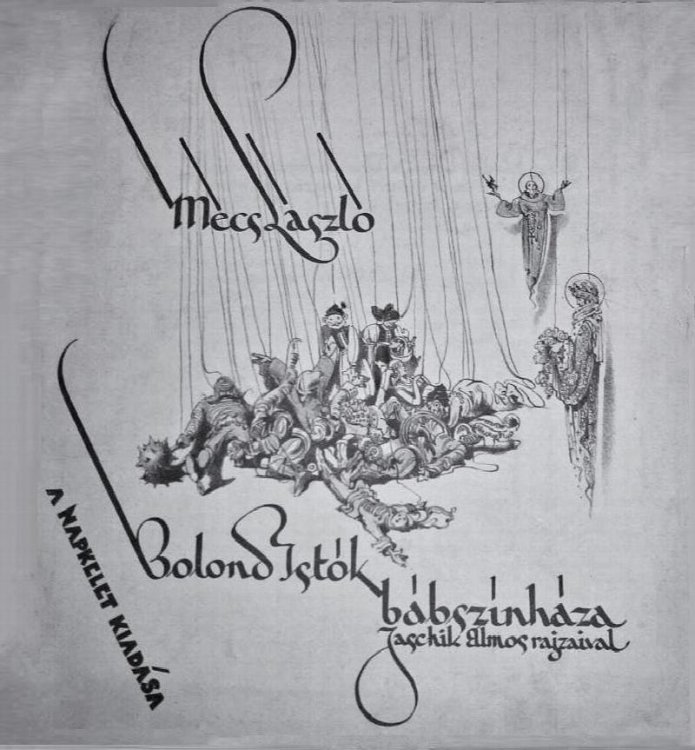 Mécs László
Bolond Istók
bábszínháza
Jaschik Álmos rajzaival
A NAPKELET KIADÁSA